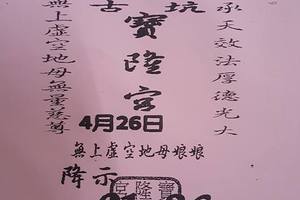 古坑
承天效法厚德光大
寶隆宮
無上虛空地母無量慈尊
4月26日
無上虛空地母娘娘
降示
寶隆宮